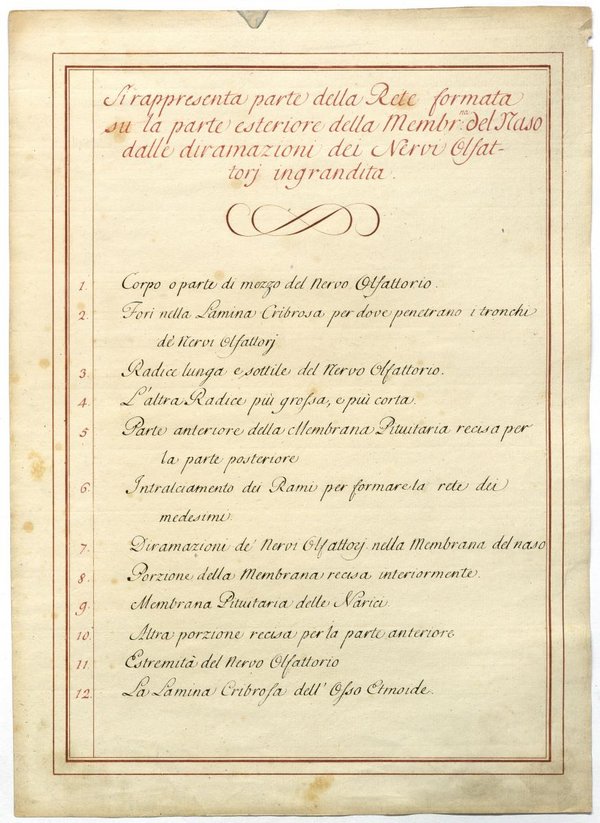 Si rappresenta parte della Rete formata
su la parte esteriore della Membr:na del Naso
dalle diramazioni dei Nervi Olfat-
torj ingrandita.
1. Corpo o parte di mezzo del Nervo Olfattorio.
2. Fori nella Lamina Cribrosa per dove penetrano i tronchi
de' Nervi Olfattorj
3. Radice lunga e sottile del Nervo Olfattorio.
4. L'altra Radice più grossa, e più corta.
5 Parte anteriore della Membrana Pituitaria recisa per
la parte posteriore
6. Intralciamento dei Rami per formare la rete dei
medesimi.
7. Diramazioni de' Nervi Olfattorj nella Membrana del naso
8. Porzione della Membrana recisa interiormente.
9. Membrana Pituitaria delle Narici.
10. Altra porzione recisa per la parte anteriore
11. Estremità del Nervo Olfattorio
12. La Lamina Cribrosa dell' Osso Etmoide.